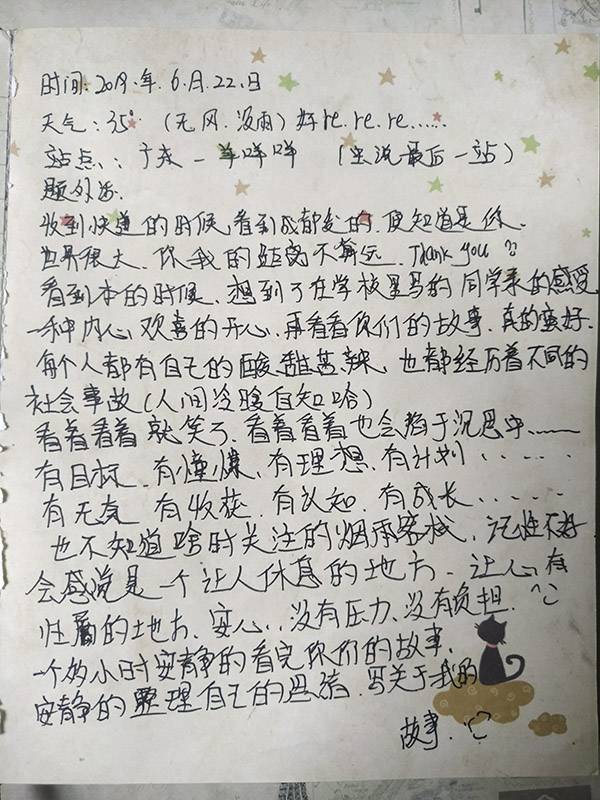 时间: 2019.年.6.月.22.日
天气: 35° (无风.没雨) 好re.re.re......
站点: 广东 — 羊咩咩 (虫说最后一站)
题外话.
收到快递的时候,看到成都发的.便知道是你.
世界很大.你我的距离不算远. Thank you
看到本的时候.想到了在学校里写的同学录的感受
一种内心欢喜的开心.再看看你们的故事.真的蛮好.
每个人都有自己的酸甜苦辣,也都经历着不同的
社会事故(人间冷暖自知哈)
看着看着就笑了.看着看着也会陷于沉思中......
有目标.有憧憬.有理想.有计划......
有无气 有收获.有认知.有成长......
也不知道啥时关注的烟雨客栈.记性不好
会感觉是一个让人休息的地方.让心有
归属的地方、安心..没有压力.没有负担.
一个多小时安静的看完你们的故事.
安静的整理自己的思绪.写关于我的
故事.